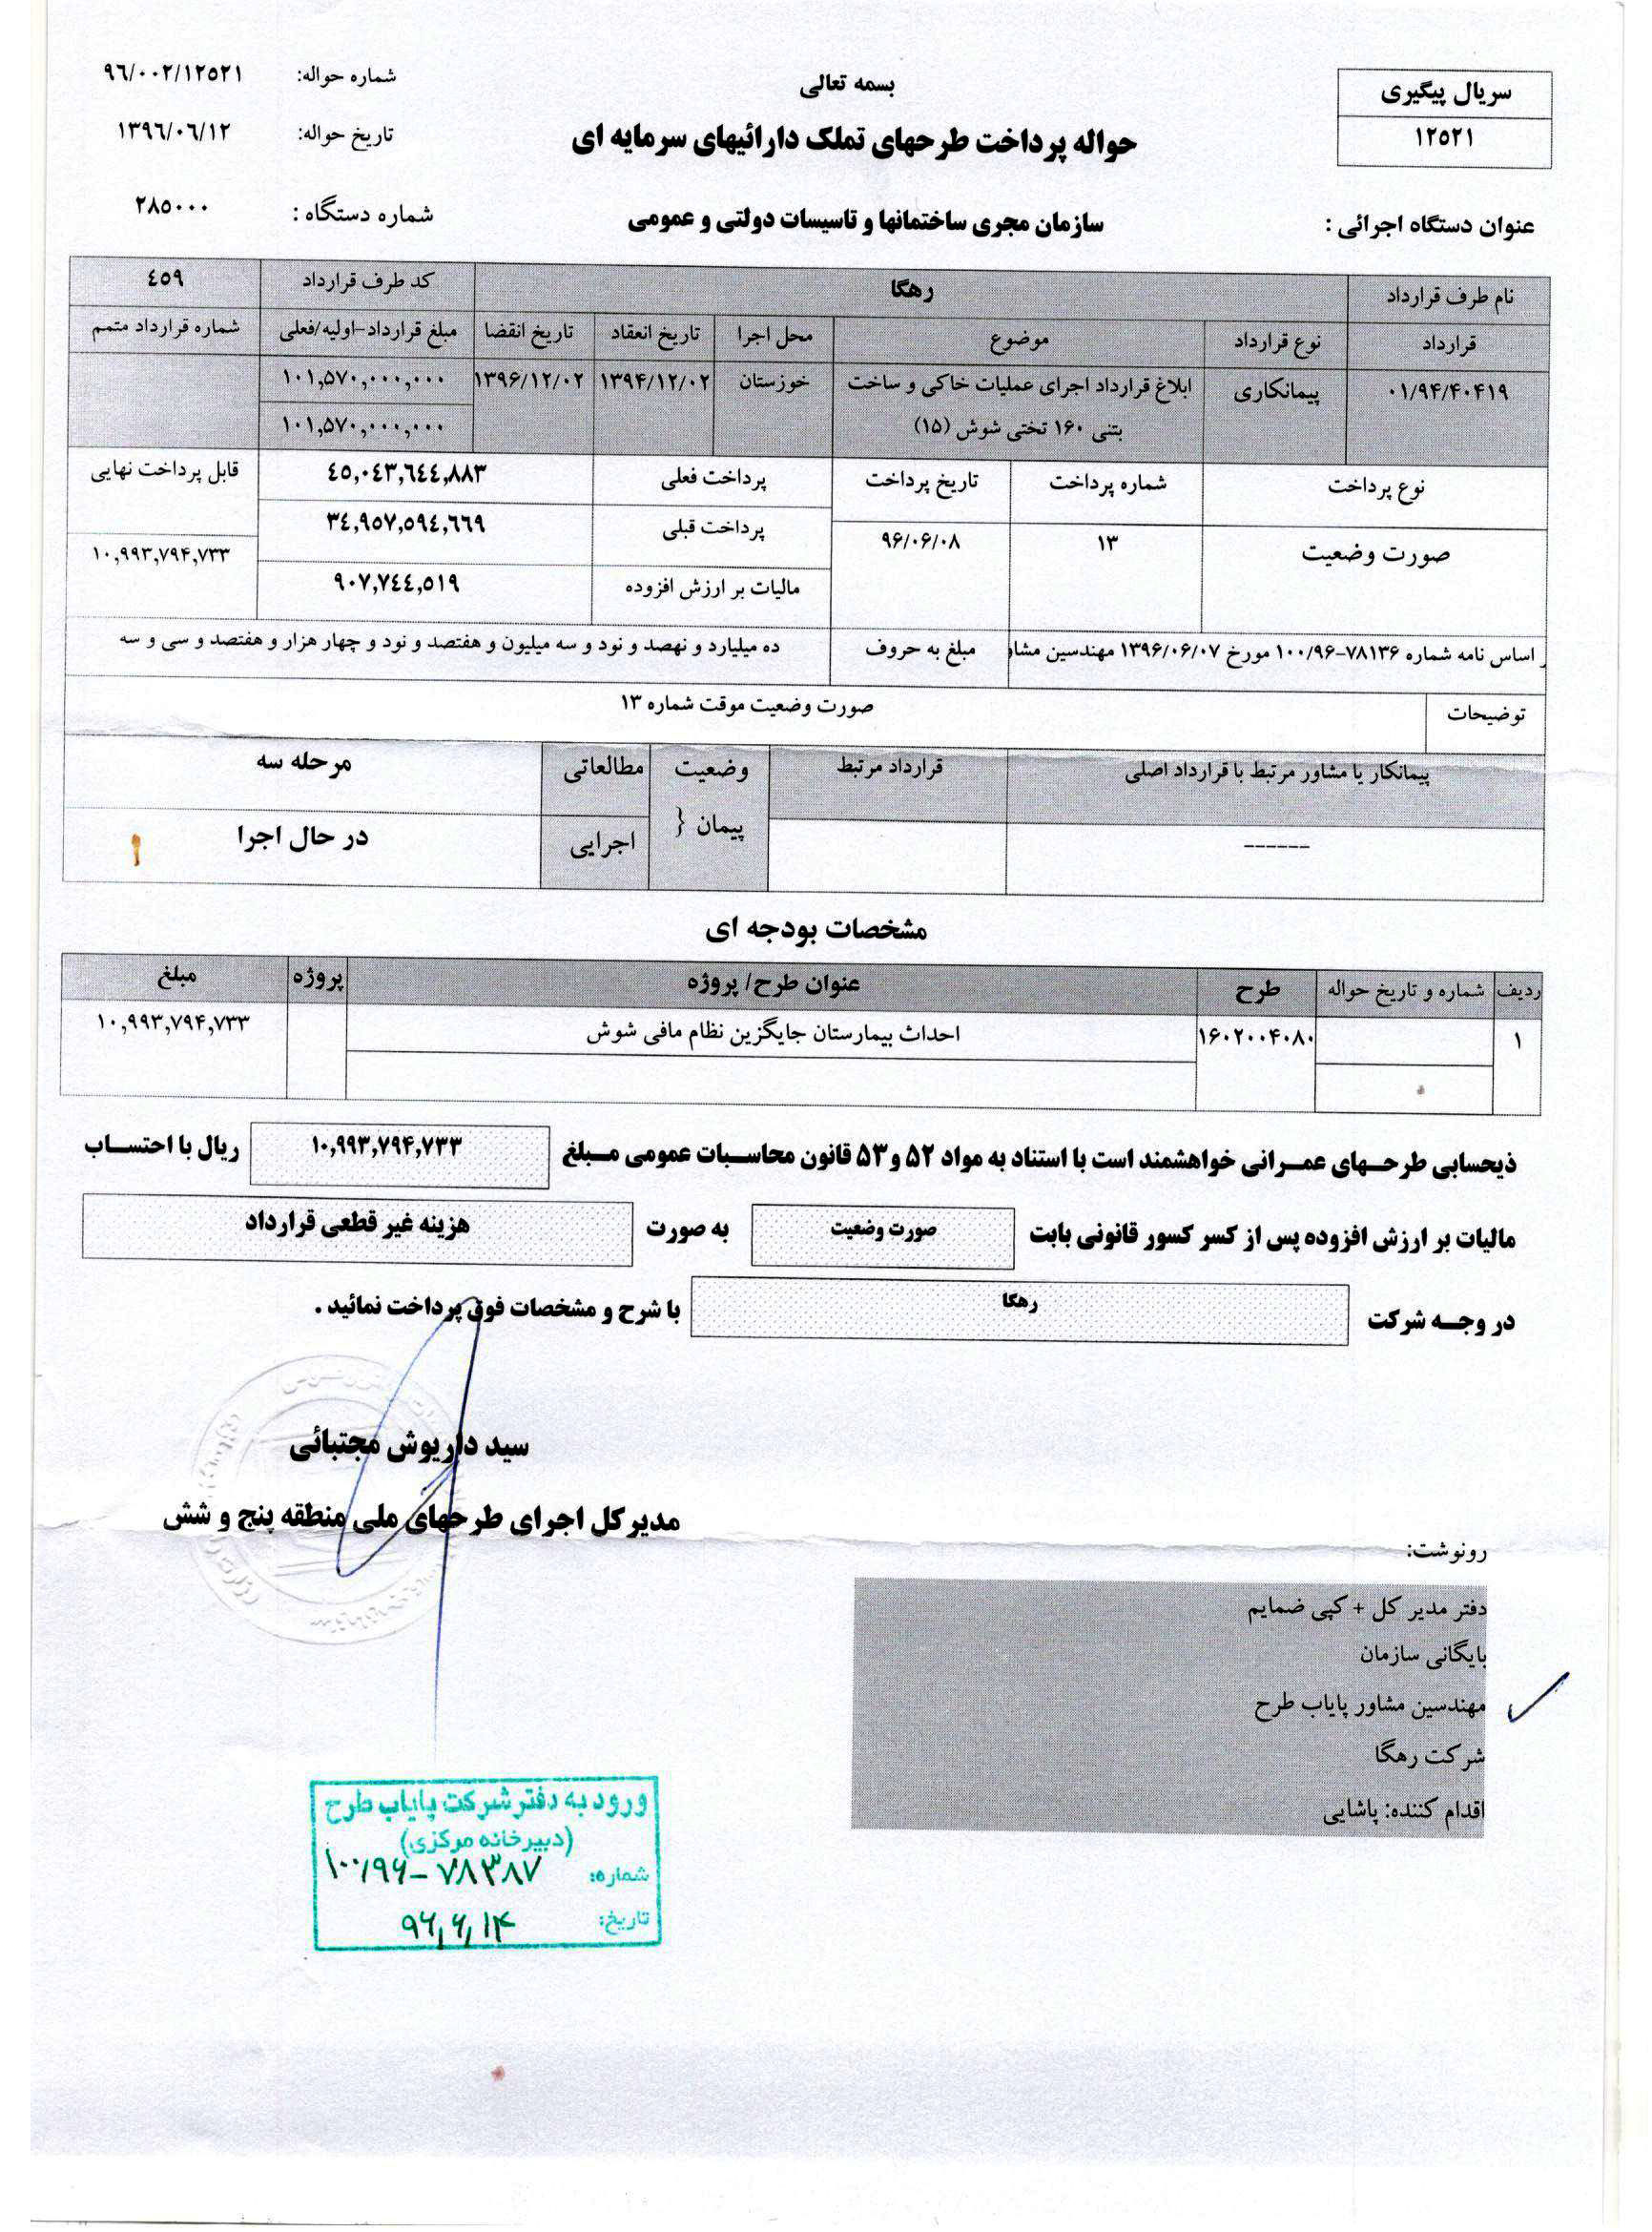 بسمه تعالی
حواله پرداخت طرحهای تملک دارائیهای سرمایه ای
سریال پیگیری
۱۲۵۲۱
شماره حواله: ۹۶/۰۰۲/۱۲۵۲۱
تاریخ حواله: ۱۳۹۶/۰۶/۱۲
عنوان دستگاه اجرائی : سازمان مجری ساختمانها و تاسیسات دولتی و عمومی شماره دستگاه : ۲۸۵۰۰۰
نام طرف قرارداد رهگا کد طرف قرارداد ۴۵۹
قرارداد نوع قرارداد موضوع محل اجرا تاریخ انعقاد تاریخ انقضا مبلغ قرارداد-اولیه/فعلی شماره قرارداد متمم
۰۱/۹۴/۴۰۴۱۹ پیمانکاری ابلاغ قرارداد اجرای عملیات خاکی و ساخت خوزستان ۱۳۹۴/۱۲/۰۲ ۱۳۹۶/۱۲/۰۲ ۱۰۱,۵۷۰,۰۰۰,۰۰۰
بتنی ۱۶۰ تختی شوش (۱۵) ۱۰۱,۵۷۰,۰۰۰,۰۰۰
نوع پرداخت شماره پرداخت تاریخ پرداخت پرداخت فعلی ۴۵,۰۴۳,۶۴۴,۸۸۳ قابل پرداخت نهایی
صورت وضعیت ۱۳ ۹۶/۰۶/۰۸ پرداخت قبلی ۳۴,۹۵۷,۵۹۴,۶۶۹ ۱۰,۹۹۳,۷۹۴,۷۳۳
مالیات بر ارزش افزوده ۹۰۷,۷۴۴,۵۱۹
ر اساس نامه شماره ۷۸۱۳۶-۱۰۰/۹۶ مورخ ۱۳۹۶/۰۶/۰۷ مهندسین مشاو مبلغ به حروف ده میلیارد و نهصد و نود و سه میلیون و هفتصد و نود و چهار هزار و هفتصد و سی و سه
توضیحات صورت وضعیت موقت شماره ۱۳
پیمانکار یا مشاور مرتبط با قرارداد اصلی قرارداد مرتبط وضعیت مطالعاتی مرحله سه
------ پیمان { اجرایی در حال اجرا
مشخصات بودجه ای
ردیف شماره و تاریخ حواله طرح عنوان طرح/ پروژه پروژه مبلغ
۱ ۱۶۰۲۰۰۴۰۸۰ احداث بیمارستان جایگزین نظام مافی شوش ۱۰,۹۹۳,۷۹۴,۷۳۳
ذیحسابی طرحهای عمرانی خواهشمند است با استناد به مواد ۵۲ و۵۳ قانون محاسبات عمومی مبلغ ۱۰,۹۹۳,۷۹۴,۷۳۳ ریال با احتساب
مالیات بر ارزش افزوده پس از کسر کسور قانونی بابت صورت وضعیت به صورت هزینه غیر قطعی قرارداد
در وجه شرکت رهگا با شرح و مشخصات فوق پرداخت نمائید .
سید داریوش مجتبائی
مدیرکل اجرای طرحهای ملی منطقه پنج و شش
رونوشت:
دفتر مدیر کل + کپی ضمایم
بایگانی سازمان
مهندسین مشاور پایاب طرح
شرکت رهگا
اقدام کننده: پاشایی
ورود به دفتر شرکت پایاب طرح
(دبیرخانه مرکزی)
شماره: ۱۰۰/۹۶-۷۸۳۸۷
تاریخ: ۹۶,۶,۱۴